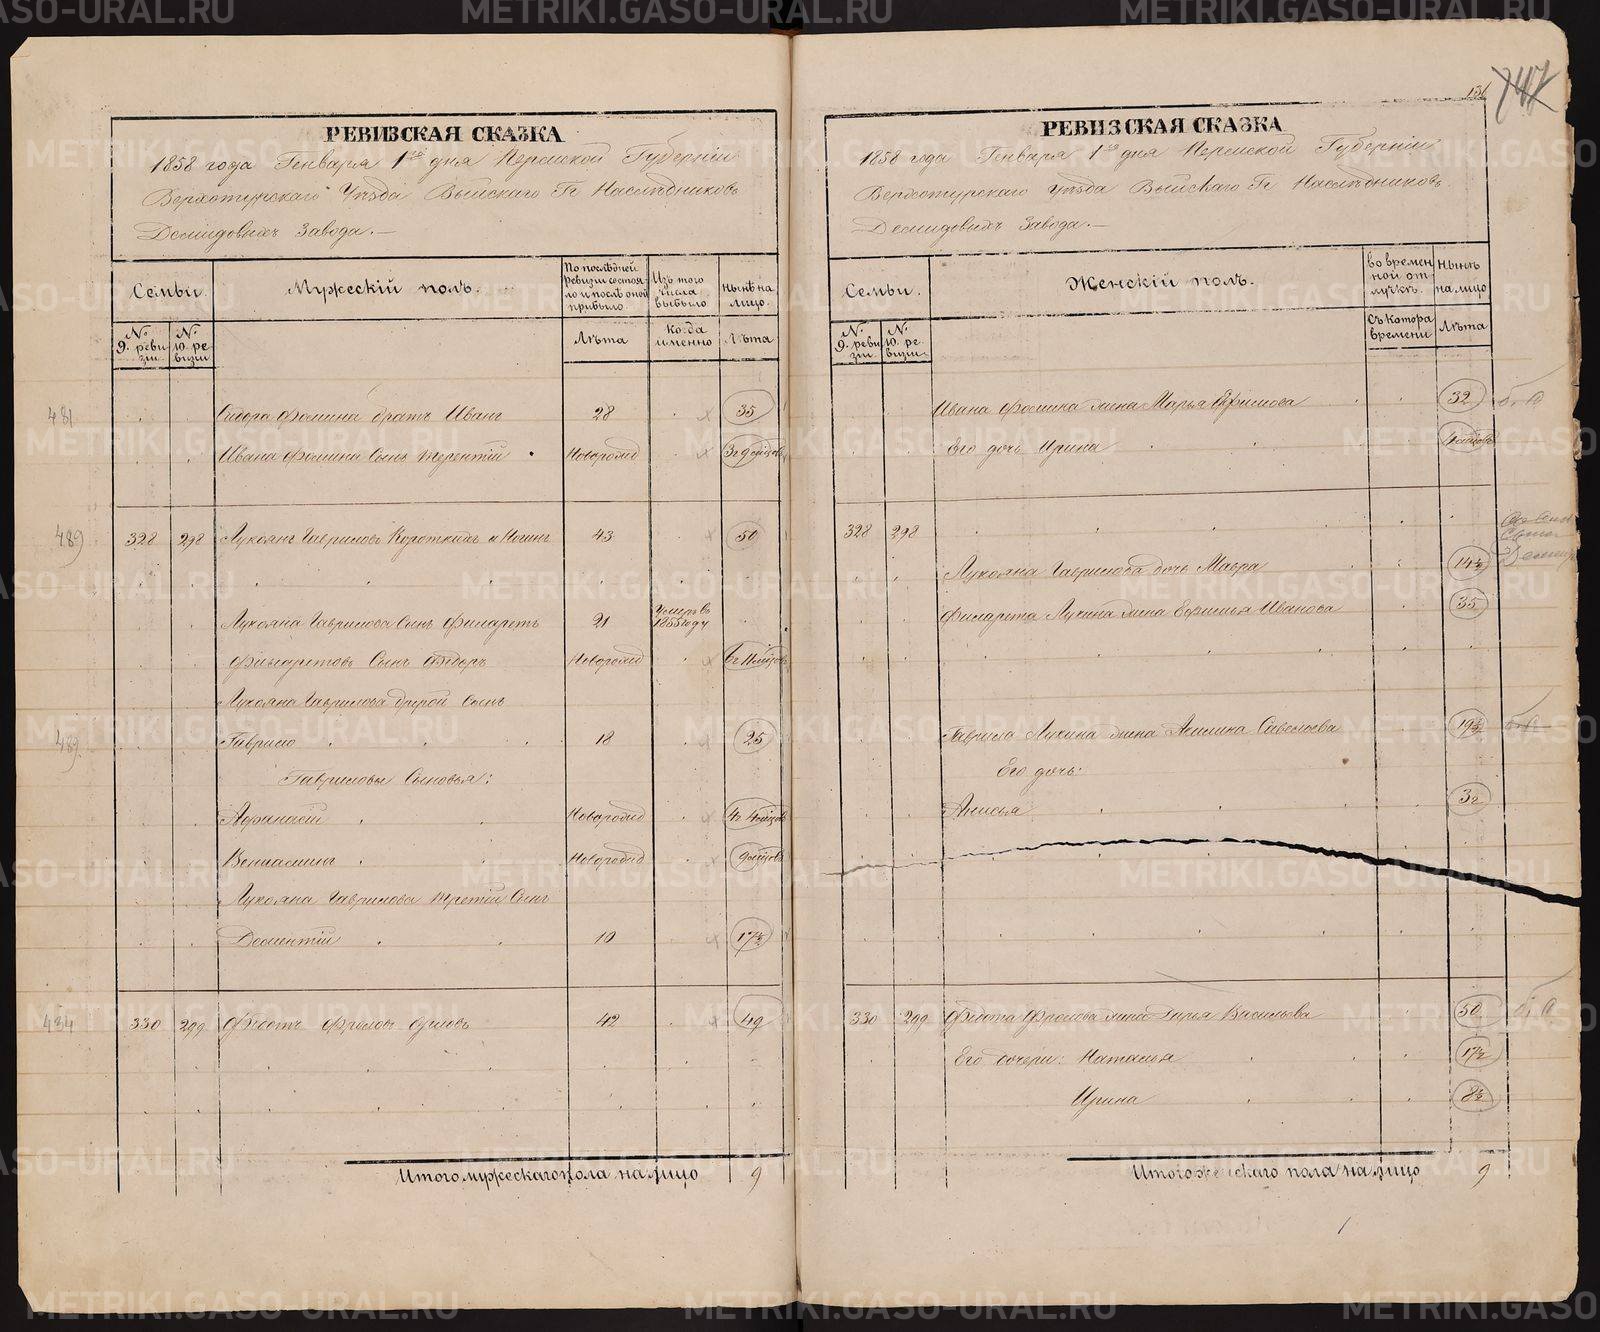 РЕВИЗСКАЯ СКАЗКА
1858 года Генваря 1го дня Пермской Губерніи
Верхотурскаго Уѣзда Выйскаго Гг Наслѣдниковъ
Демидовыхъ Завода.—
Семьи.
Мужескій полъ.
По послѣдней ревизіи состояло и послѣ оной прибыло
Изъ того числа выбыло
Нынѣ на лицо.
№ 9. ревизіи
№ 10. ревизіи
Лѣта
Когда именно
Лѣта
481
Сидора Фомина братъ Иванъ 28 35
Ивана Фомина Сынъ Терентій Новорожд 3г 9мѣцовъ
489 328 298 Лукоянъ Гавриловъ Короткихъ и Ногинъ 43 50
Лукояна Гаврилова Сынъ Филаретъ 21 Умеръ въ 1855 году
Филаретовъ Сынъ Ѳедоръ Новорожд 6г 11мѣцовъ
Лукояна Гаврилова другой Сынъ
489 Гаврило 18 25
Гавриловы Сыновья:
Афонасій Новорожд 4г 4мѣцовъ
Веніаминъ Новорожд 9мѣцовъ
Лукояна Гаврилова третій Сынъ
Дементій 10 17½
484 330 299 Ѳедотъ Фроловъ Орловъ 42 49
Итого мужескаго пола на лицо 9
156
747
РЕВИЗСКАЯ СКАЗКА
1858 года Генваря 1го дня Пермской Губерніи
Верхотурскаго Уѣзда Выйскаго Гг Наслѣдниковъ
Демидовыхъ Завода.—
Семьи.
Женскій полъ.
Во временной отлучкѣ.
Нынѣ на лицо
№ 9. ревизіи
№ 10. ревизіи
Съ котора времени
Лѣта
Ивана Фомина жена Марья Ефимова 32
Его дочь Ирина
328 298
Лукояна Гаврилова дочь Мавра 14½
Филарета Лукина жена Ефимья Иванова 35
Гаврила Лукина жена Акилина Савельева 19½
Его дочь:
Анисья 3г
330 299 Ѳедота Фролова жена Дарья Васильева 50
Его дочери: Наталья 17½
Ирина 8½
Итого женскаго пола на лицо 9
METRIKI.GASO-URAL.RU